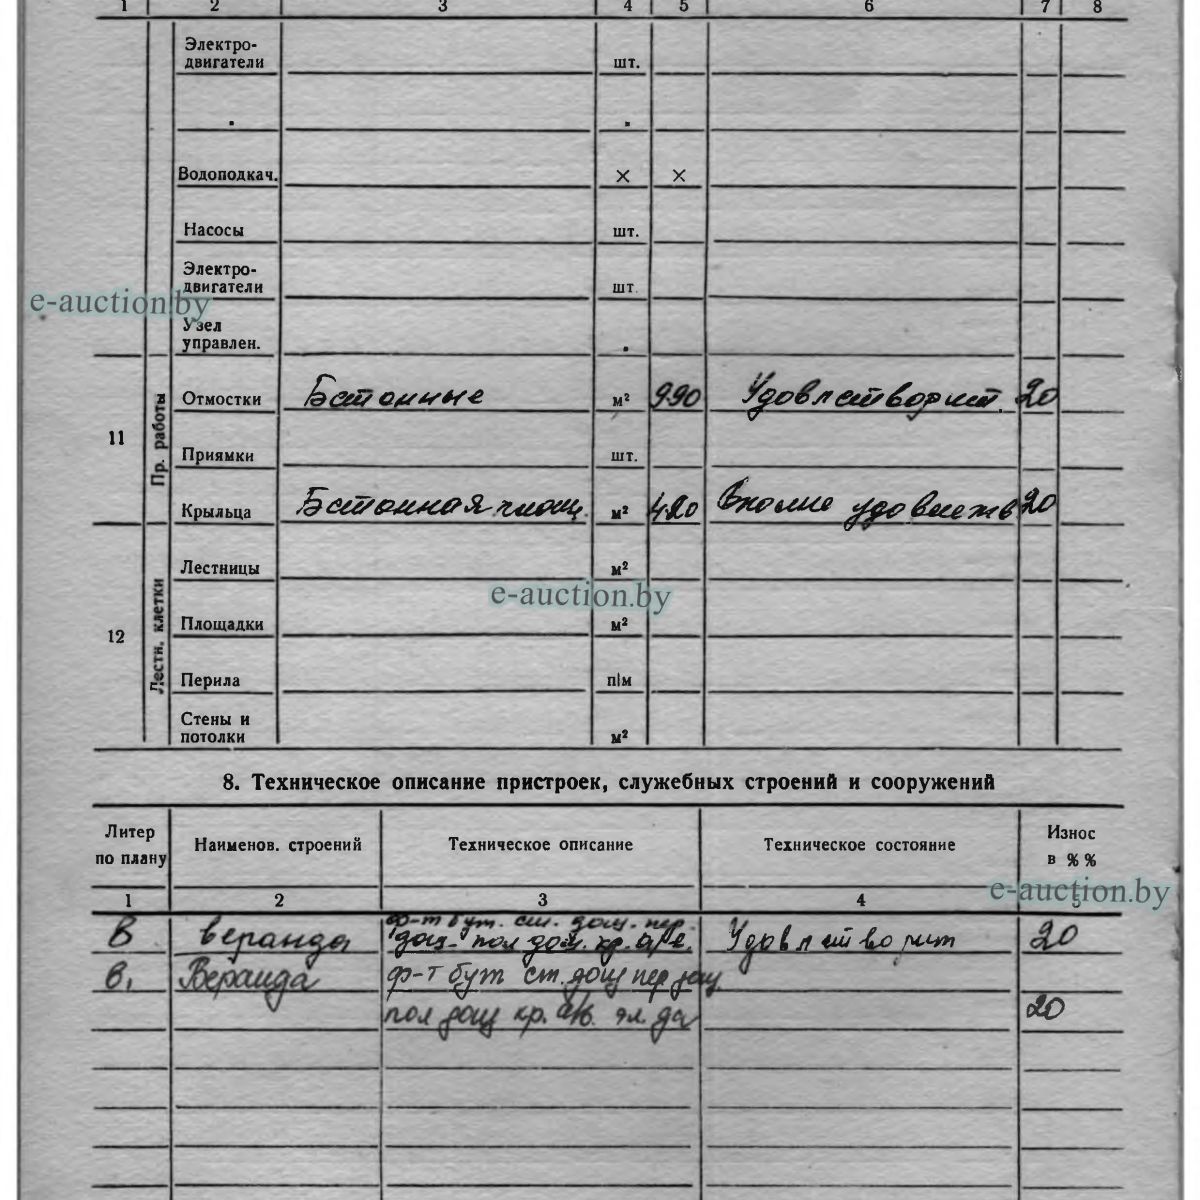 1 2 3 4 5 6 7 8
Электро-
двигатели шт.
Водоподкач. × ×
Насосы шт.
Электро-
двигатели шт.
e-auction.by
Узел
управлен.
11 Пр. работы
Отмостки Бетонные м² 990 Удовлетворит. 20
Приямки шт.
Крыльца Бетонная площ. м² 420 Вполне удовлетв 20
12 Лестн. клетки
Лестницы м²
e-auction.by
Площадки м²
Перила п/м
Стены и
потолки м²
8. Техническое описание пристроек, служебных строений и сооружений
Литер
по плану Наименов. строений Техническое описание Техническое состояние Износ
в %%
e-auction.by
1 2 3 4 5
ф-т бут. ст. дощ. пер.
В веранда дощ. пол дощ. кр. Удовлетворит 20
в₁ Веранда ф-т бут ст. дощ пер дощ.
пол дощ кр. а/ц. эл. да 20